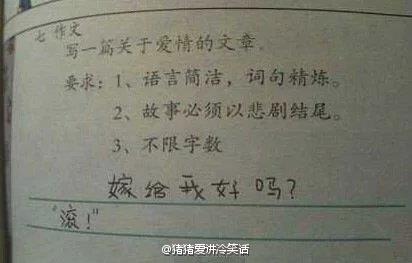 七 作文
写一篇关于爱情的文章。
要求：1、语言简洁，词句精炼。
2、故事必须以悲剧结尾。
3、不限字数
嫁给我好吗？
“滚！”
@猪猪爱讲冷笑话